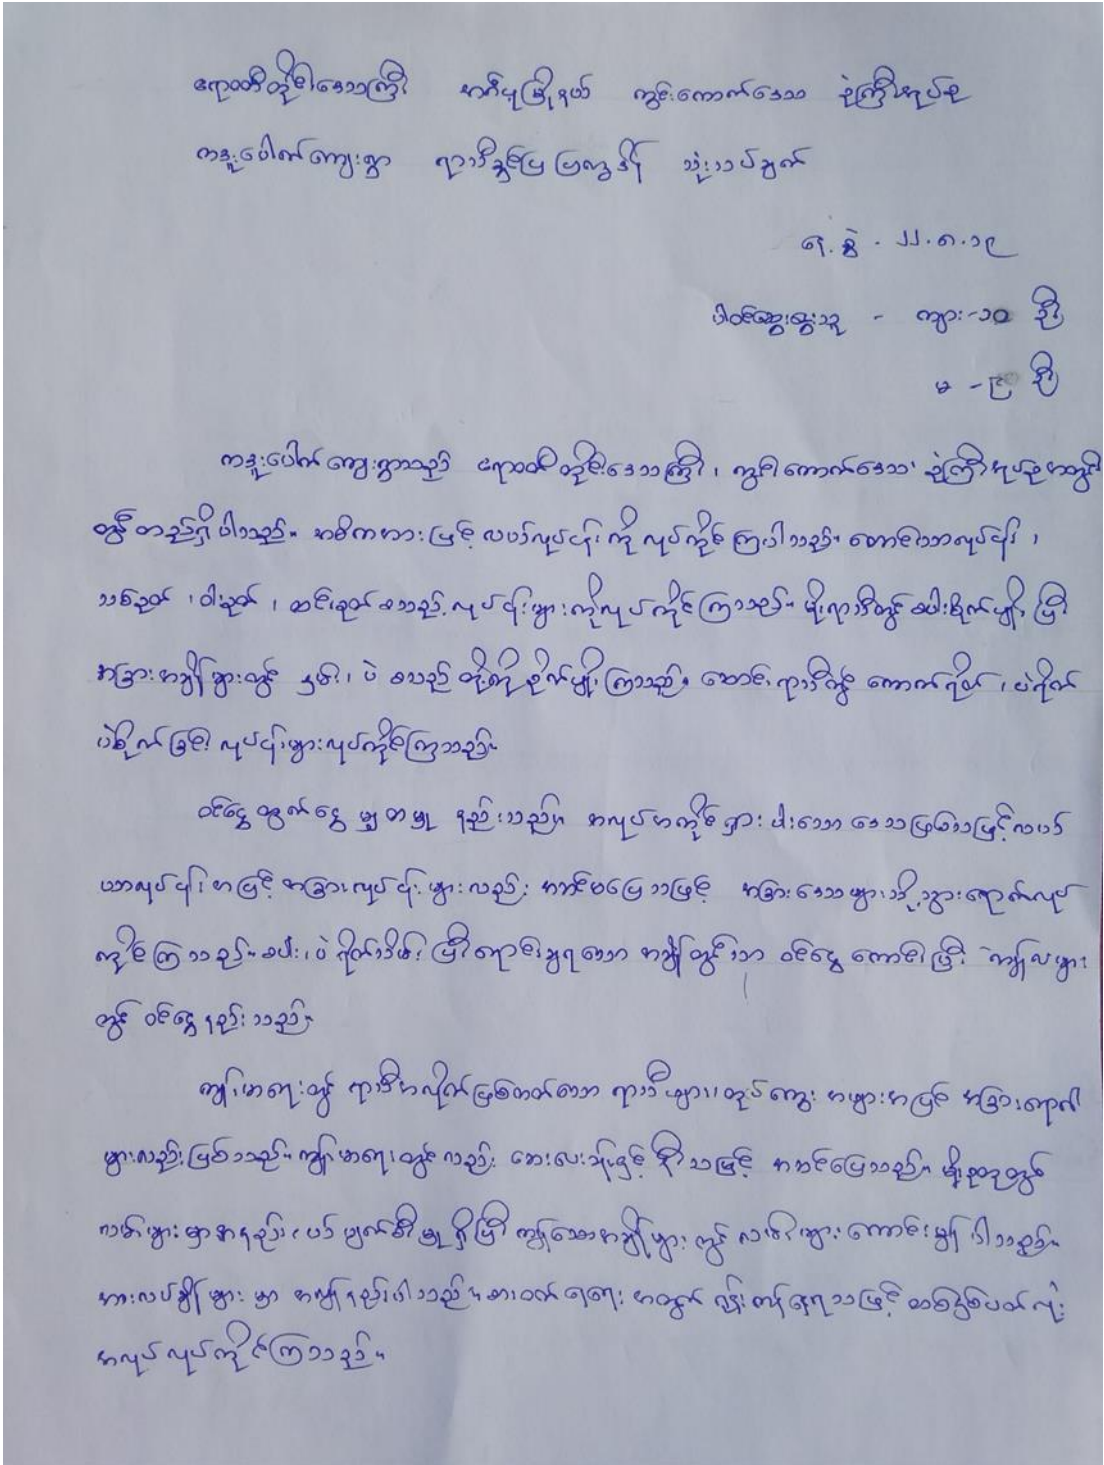 ဧရာဝတီတိုင်းဒေသကြီး ဟင်္သာမြို့နယ် ကွင်းကောက်ဒေသ ခဲကြီးအုပ်စု
ကဒူးပေါက်ကျေးရွာ ရာသီခွင်ပြ ပြက္ခဒိန် သုံးသပ်ချက်
နေ့.စွဲ - ၂၂.၈.၁၉
ပါဝင်ဆွေးနွေးသူ - ကျား - ၁၀ ဦး
မ - ၉ ဦး
ကဒူးပေါက်ကျေးရွာသည် ဧရာဝတီတိုင်းဒေသကြီး၊ ကွင်းကောက်ဒေသ၊ ခဲကြီးအုပ်စုအတွင်း
တွင် တည်ရှိပါသည်။ အဓိကအားဖြင့် လယ်လုပ်ငန်းကို လုပ်ကိုင်ကြပါသည်။ တောင်ယာလုပ်ငန်း၊
သစ်ခုတ်၊ ဝါးခုတ်၊ ထင်းခုတ်စသည့် လုပ်ငန်းများကိုလုပ်ကိုင်ကြသည်။ မိုးရာသီတွင် စပါးစိုက်ပျိုးပြီး
အခြားအချိန်များတွင် နှမ်း၊ ပဲ စသည်တို့ကို စိုက်ပျိုးကြသည်။ ဆောင်းရာသီတွင် ကောက်ရိတ်၊ ပဲရိုက်
ပဲစိုက်ခြင်း လုပ်ငန်းများလုပ်ကိုင်ကြသည်။
ဝင်ငွေထွက်ငွေ မျှတမှု နည်းသည်။ အလုပ်အကိုင်ရှားပါးသော ဒေသဖြစ်သဖြင့် လယ်
ယာလုပ်ငန်းအပြင် အခြားလုပ်ငန်းများလည်း အဆင်မပြေသဖြင့် အခြားဒေသများသို့ သွားရောက်လုပ်
ကိုင်ကြသည်။ စပါး၊ ပဲ ရိုက်သိမ်းပြီးရောင်းချရသော အချိန်တွင်သာ ဝင်ငွေကောင်းပြီး ကျန်လများ
တွင် ဝင်ငွေနည်းသည်။
ကျန်းမာရေးတွင် ရာသီအလိုက်ဖြစ်တတ်သော ရာသီဖျား၊ တုပ်ကွေး အများအပြင် အခြားရောဂါ
များလည်းဖြစ်သည်။ ကျန်းမာရေးတွင်လည်း ဆေးပေးခန်းနှင့် နီးသဖြင့် အဆင်ပြေသည်။ မိုးဥတုတွင်
လမ်းများမှာအနည်းငယ်ပျက်စီးမှုရှိပြီး ကျန်သောအချိန်များတွင် လမ်းများကောင်းမွန်ပါသည်။
အားလပ်ချိန်များမှာ အလွန်နည်းပါသည်။ စားဝတ်နေရေးအတွက် ရုန်းကန်နေရသဖြင့် တစ်နှစ်ပတ်လုံး
အလုပ်လုပ်ကိုင်ကြသည်။